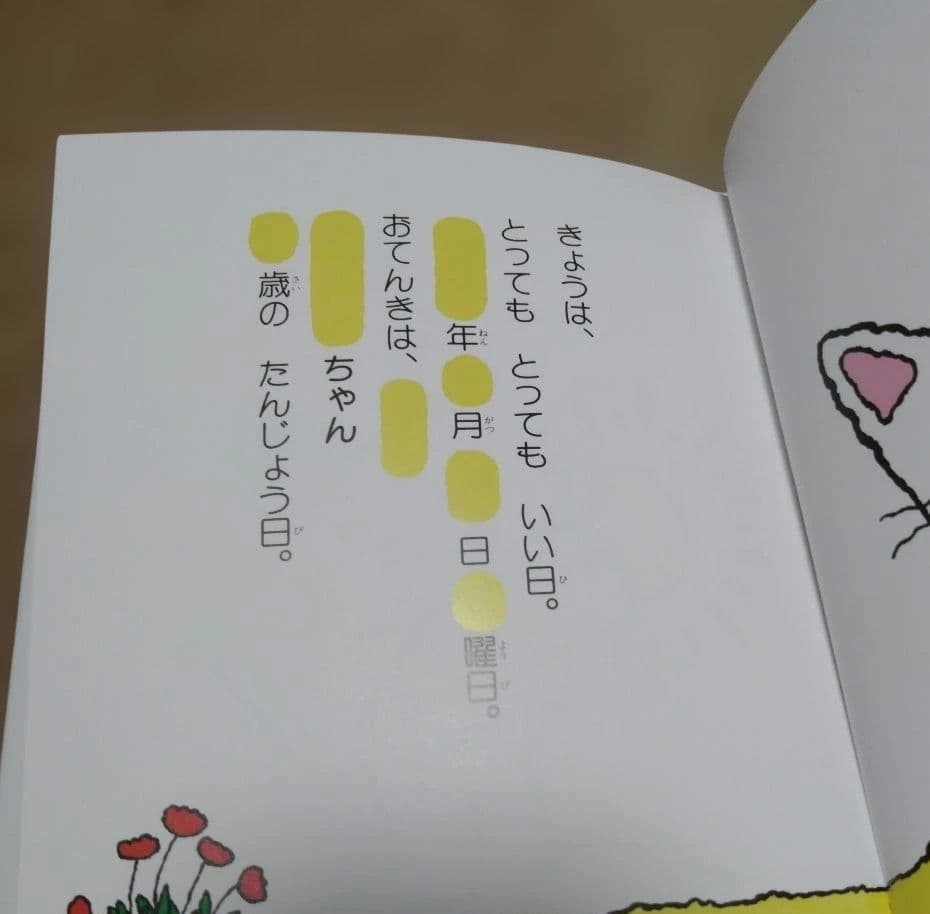 きょうは、
とっても とっても いい日。
年 月 日 曜日。
おてんきは、
ちゃん
歳の たんじょう日。